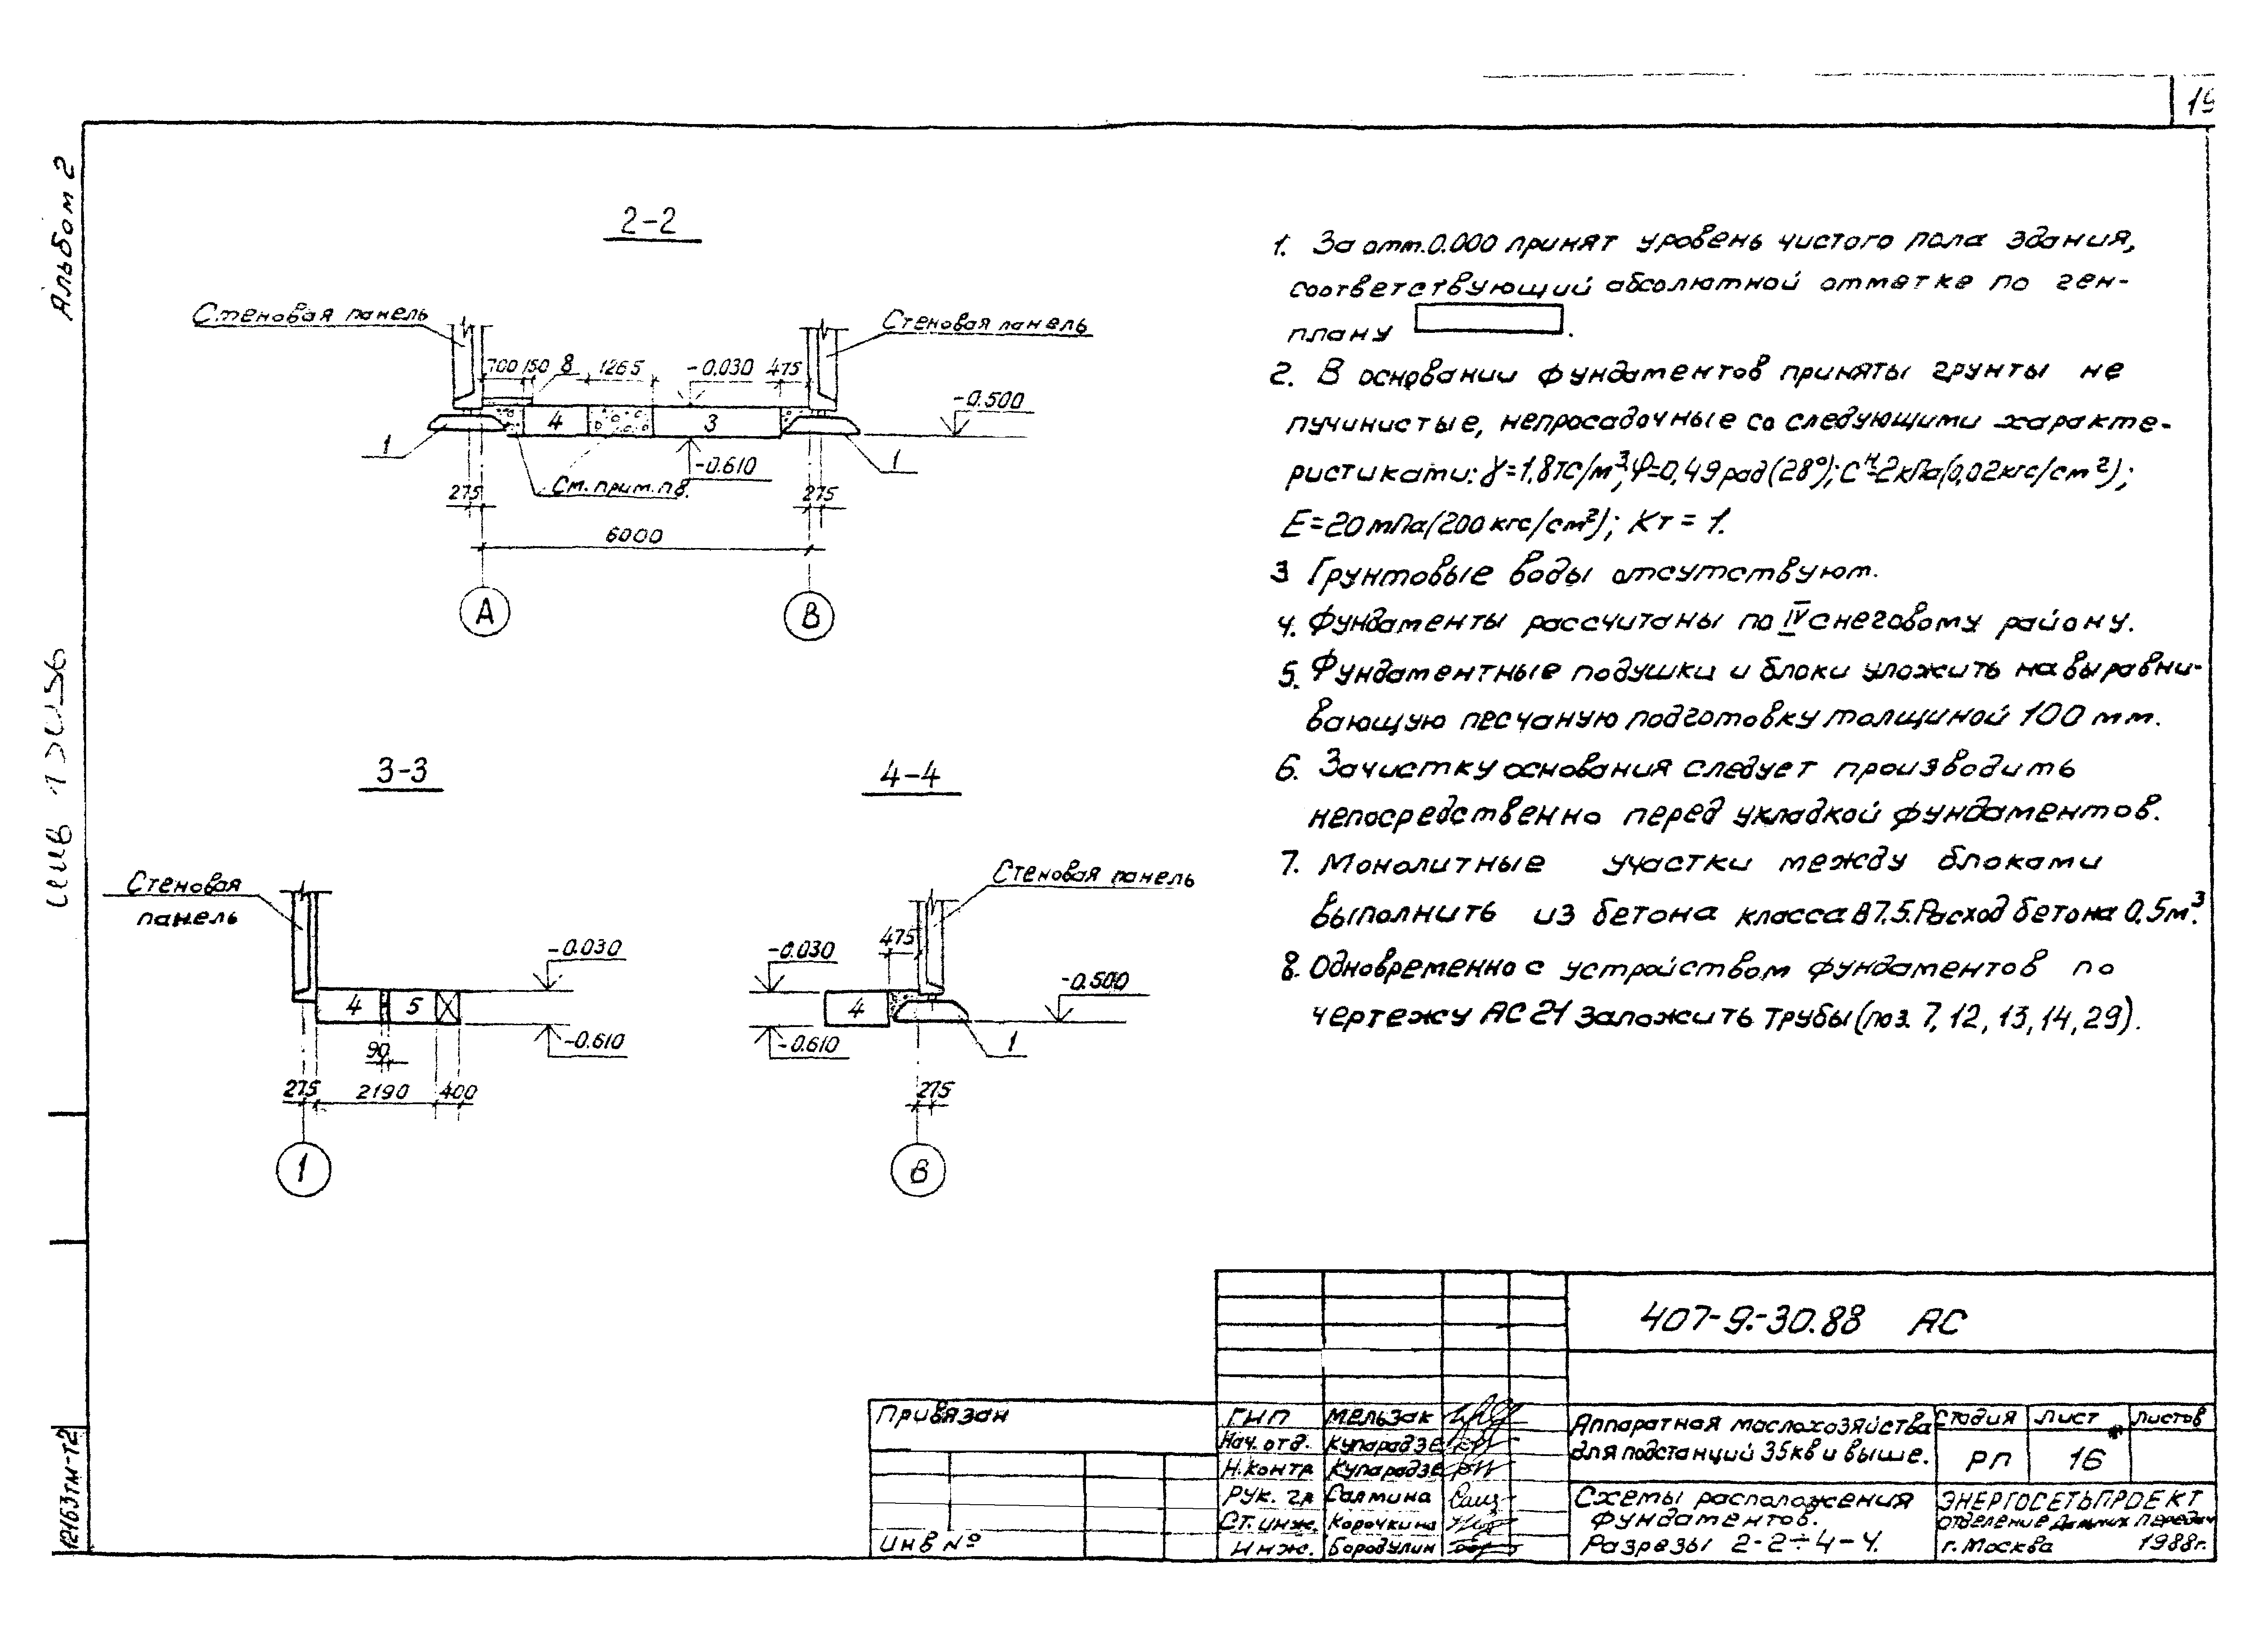 19
Альбом 2
2-2
Стеновая панель
Стеновая панель
700 150 8 1265 -0.030 475
-0.500
4 3
1 1
-0.610
См. прим. п 8.
275 275
6000
А В
3-3
Стеновая
панель
-0.030
4 5
-0.610
90
275 2190 400
1
4-4
Стеновая панель
475
-0.030
-0.500
4
-0.610
1
275
В
1. За отм. 0.000 принят уровень чистого пола здания,
соответствующий абсолютной отметке по ген-
плану .
2. В основании фундаментов приняты грунты не
пучинистые, непросадочные со следующими характе-
ристиками: γ=1,8тс/м³; φ=0,49 рад (28°); Сᴴ=2кПа(0,02кгс/см²);
Е=20мПа(200 кгс/см²); Кт = 1.
3 Грунтовые воды отсутствуют.
4. Фундаменты рассчитаны по IV снеговому району.
5. Фундаментные подушки и блоки уложить на выравни-
вающую песчаную подготовку толщиной 100 мм.
6. Зачистку основания следует производить
непосредственно перед укладкой фундаментов.
7. Монолитные участки между блоками
выполнить из бетона класса В7.5. Расход бетона 0,5м³.
8. Одновременно с устройством фундаментов по
чертежу АС 21 заложить трубы (поз. 7, 12, 13, 14, 29).
407-9-30.88 АС
Привязан
Инв №
ГИП Мельзак
Нач. отд. Купарадзе
Н. контр Купарадзе
Рук. гр Салмина
Ст. инж. Корочкина
Инж. Бородулин
Аппаратная маслохозяйства
для подстанций 35кв и выше.
Стадия Лист Листов
РП 16
Схемы расположения
фундаментов.
Разрезы 2-2÷4-4.
ЭНЕРГОСЕТЬПРОЕКТ
отделение дальних передач
г. Москва 1988г.
12163тм-т2